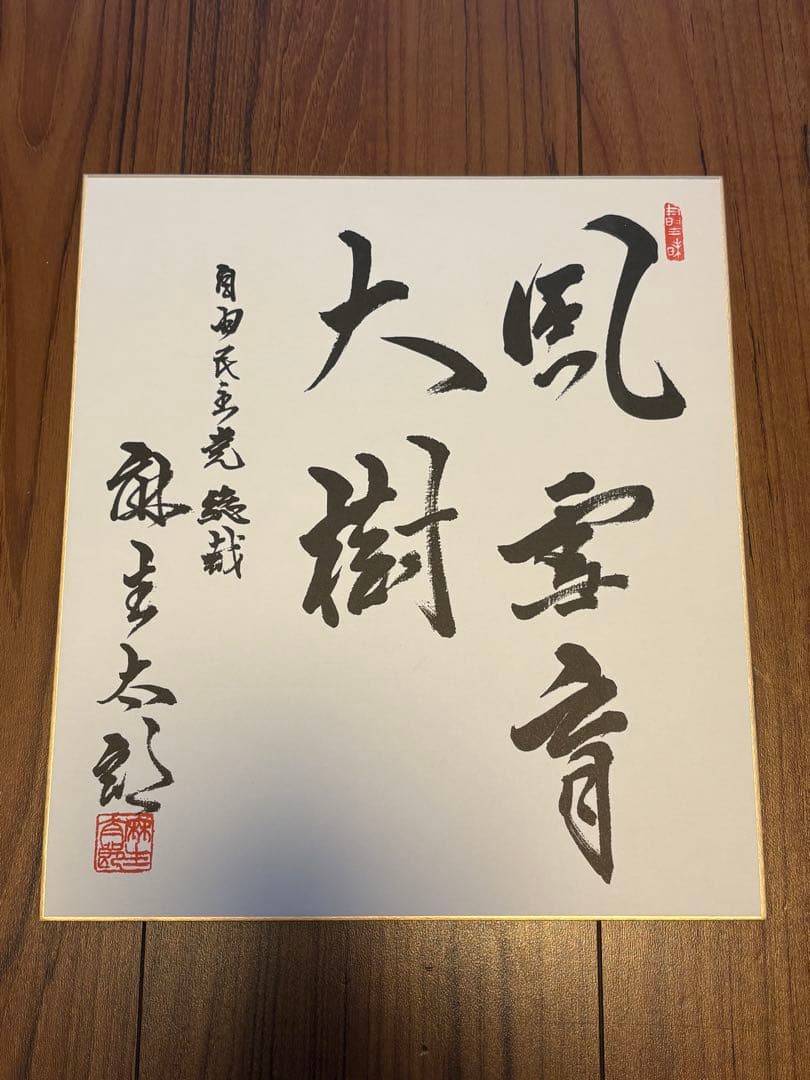 風雪育
大樹
自由民主党 総裁
麻生太郎
麻生
太郎